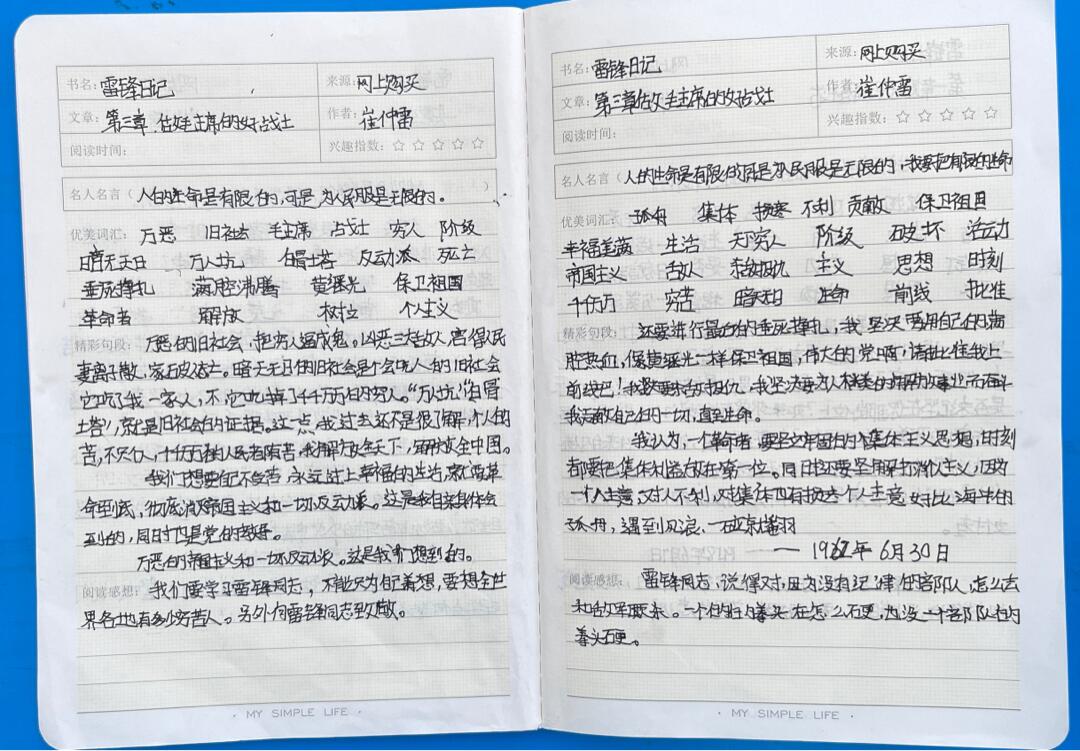 书名: 雷锋日记
来源: 网上购买
文章: 第三章 主席的好战士
作者: 崔仲雷
阅读时间:
兴趣指数: ☆☆☆☆☆
名人名言（人的生命是有限的,可是 为人民服是无限的。）
优美词汇: 万恶 旧社会 毛主席 战士 穷人 阶级
暗无天日 万人坑 白骨塔 反动派 死亡
垂死挣扎 满腔沸腾 黄继光 保卫祖国
革命者 解放 权位 个人主义
精彩句段: 万恶的旧社会 把穷人逼成鬼。凶恶三敌人 害得民
妻离子散、家破人亡。暗无天日的旧社会是个会吃人的旧社会
它吃了我一家人，不,它吃掉了千千万万的穷人。“万人坑”白骨
塔”就是旧社会的证据。这一点,我过去还不是很了解,个人的
苦,不只个人，千千万万的人民都有苦,我解放天下，解放全中国。
我们想要不受苦，永远过上幸福的生活,就把革
命到底,彻底消灭帝国主义和一切反动派。这是我自亲身体会
到的，同时也是党的教导。
万恶的帝国主义和一切反动派。这是我们想到的。
阅读感想: 我们要学习雷锋同志，不能只为自己着想,要想全世
界各地有多少穷苦人。另外向雷锋同志致敬。
· MY SIMPLE LIFE ·
书名: 雷锋日记
来源: 网上购买
文章: 第三章 毛主席的好战士
作者: 崔仲雷
兴趣指数: ☆☆☆☆☆
阅读时间:
名人名言（人的生命是有限的可是为人民服是无限的，我要把有限的生命
优美词汇: 孤舟 集体 损害 不利 贡献 保卫祖国
幸福美满 生活 天下穷人 阶级 破坏 活动
帝国主义 敌人 主义 思想 时刻
千千万万 穷苦 生命 前线 批准
精彩句段: 还要进行最的垂死挣扎，我坚决要用自己的满
腔热血,像黄继光一样保卫祖国,伟大的党啊,请批准我上
前线吧！我坚决为人类的解放事业而奋斗
我贡献自己的一切,直至生命。
我认为，一个革命者,要坚定集体主义思想,时刻
都要把集体利益放在第一位。同时还要坚解打个人主义，因为
一个人主意,对人不利,对集体 个人主意好比海里的
孤舟，遇到风浪，一碰
—— 1962年 6月30日
阅读感想: 雷锋同志,说得对,因为没有纪律的部队,怎么去
和敌军。一个的拳头在怎么硬,也没一个部队的
拳头硬。
· MY SIMPLE LIFE ·